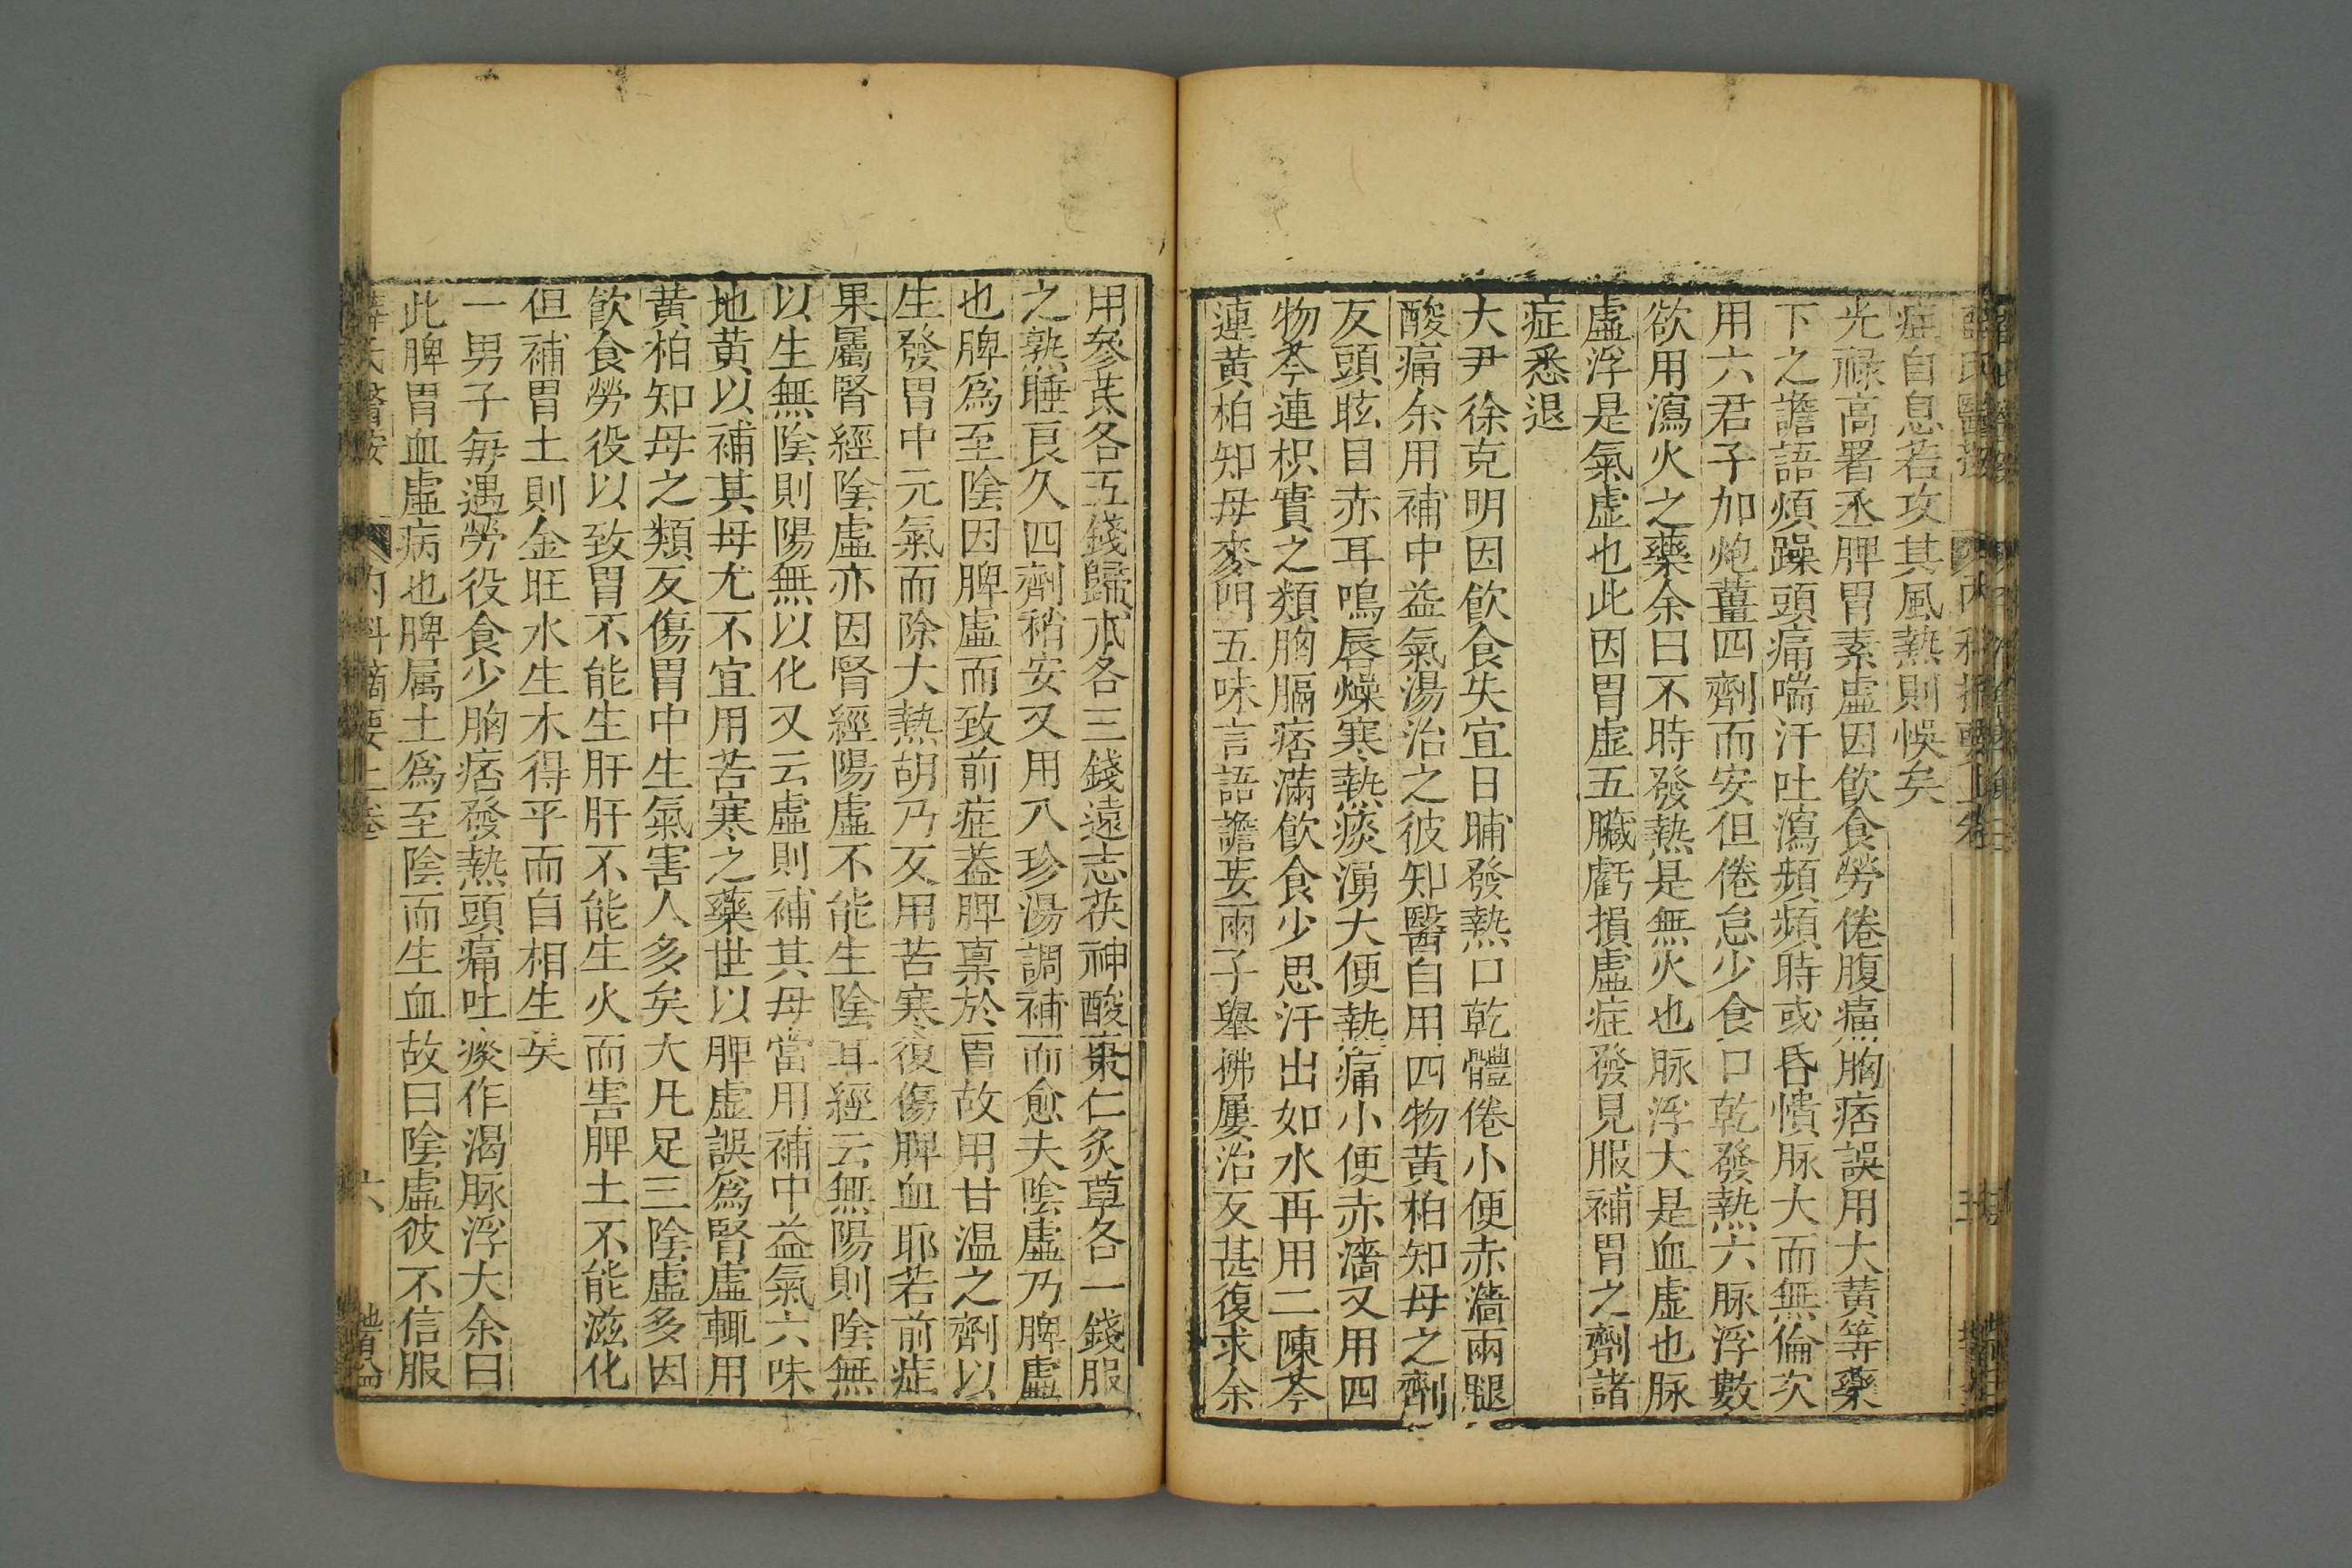 薛氏醫按 內科摘要上卷 五
症自息若攻其風熱則悞矣
光祿高署丞脾胃素虛因飲食勞倦腹痛胸痞誤用大黃等藥
下之譫語煩躁頭痛喘汗吐瀉頻頻時或昏憒脉大而無倫次
用六君子加炮薑四劑而安但倦怠少食口乾發熱六脉浮數
欲用瀉火之藥余曰不時發熱是無火也脉浮大是血虛也脉
虛浮是氣虛也此因胃虛五臟虧損虛症發見服補胃之劑諸
症悉退
大尹徐克明因飲食失宜日晡發熱口乾體倦小便赤濇兩腿
酸痛余用補中益氣湯治之彼知醫自用四物黃柏知母之劑
反頭眩目赤耳鳴唇燥寒熱痰湧大便熱痛小便赤濇又用四
物芩連枳實之類胸膈痞滿飲食少思汗出如水再用二陳芩
連黃柏知母麥門五味言語譫妄兩手舉拂屢治反甚復求余
用參芪各五錢歸朮各三錢遠志茯神酸棗仁炙草各一錢服
之熟睡良久四劑稍安又用八珍湯調補而愈夫陰虛乃脾虛
也脾爲至陰因脾虛而致前症葢脾禀於胃故用甘温之劑以
生發胃中元氣而除大熱胡乃反用苦寒復傷脾血耶若前症
果屬腎經陰虛亦因腎經陽虛不能生陰耳經云無陽則陰無
以生無陰則陽無以化又云虛則補其母當用補中益氣六味
地黃以補其母尤不宜用苦寒之藥世以脾虛誤爲腎虛輒用
黃柏知母之類反傷胃中生氣害人多矣大凡足三陰虛多因
飲食勞役以致胃不能生肝肝不能生火而害脾土不能滋化
但補胃土則金旺水生木得平而自相生矣
一男子每遇勞役食少胸痞發熱頭痛吐痰作渴脉浮大余曰
此脾胃血虛病也脾属土爲至陰而生血故曰陰虛彼不信服
薛氏醫按 內科摘要上卷 六